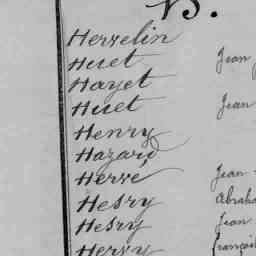 Herselin
Huet Jean
Hayet
Huet Jean
Henry
Hazard
Herse Jean
Hesry Abraha
Hesry Jean
Hersy françois